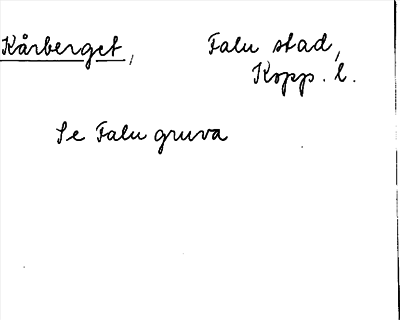 Kårberget, Falu stad,
Kopp. l.
Se Falu gruva